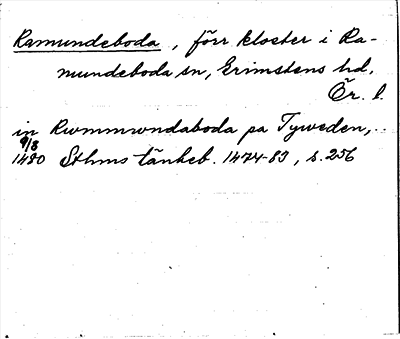 Ramundeboda, förr kloster i Ra-
mundeboda sn, Grimstens hd,
Ör. l.
in Rwmmwndaboda pa Tyweden,..
9/8
1480 Sthms tänkeb. 1474-83, s. 256